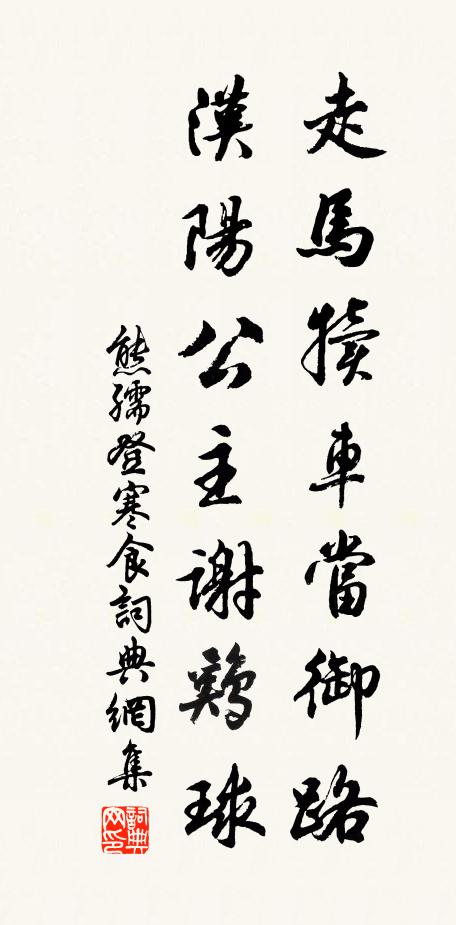 走馬犢車當御路
漢陽公主謝鷄球
熊孺登寒食詞典網集
詞典網印